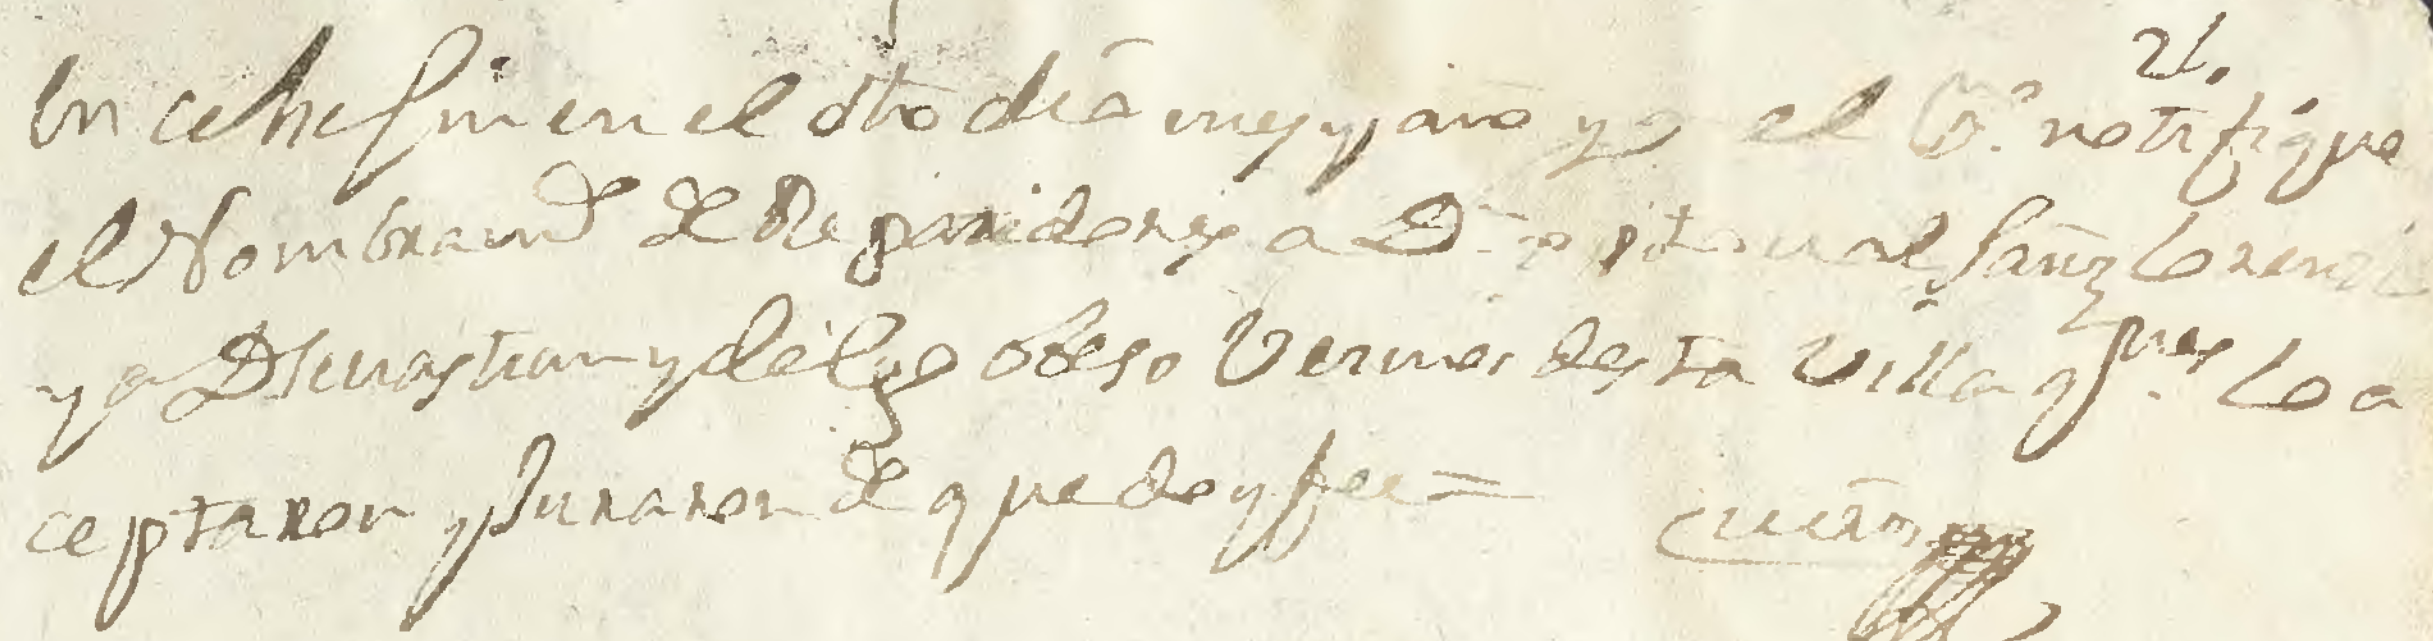 21.
En cehesin en el dho dia mes y año yo el es.no notifique
el Nombram.to de Reparidores a D.n xptoual Sanz Lorencio
y a D Seuastian y de Obeso Vecinos desta Villa q.nes lo a
ceptaron y Juraron de que doy fee =